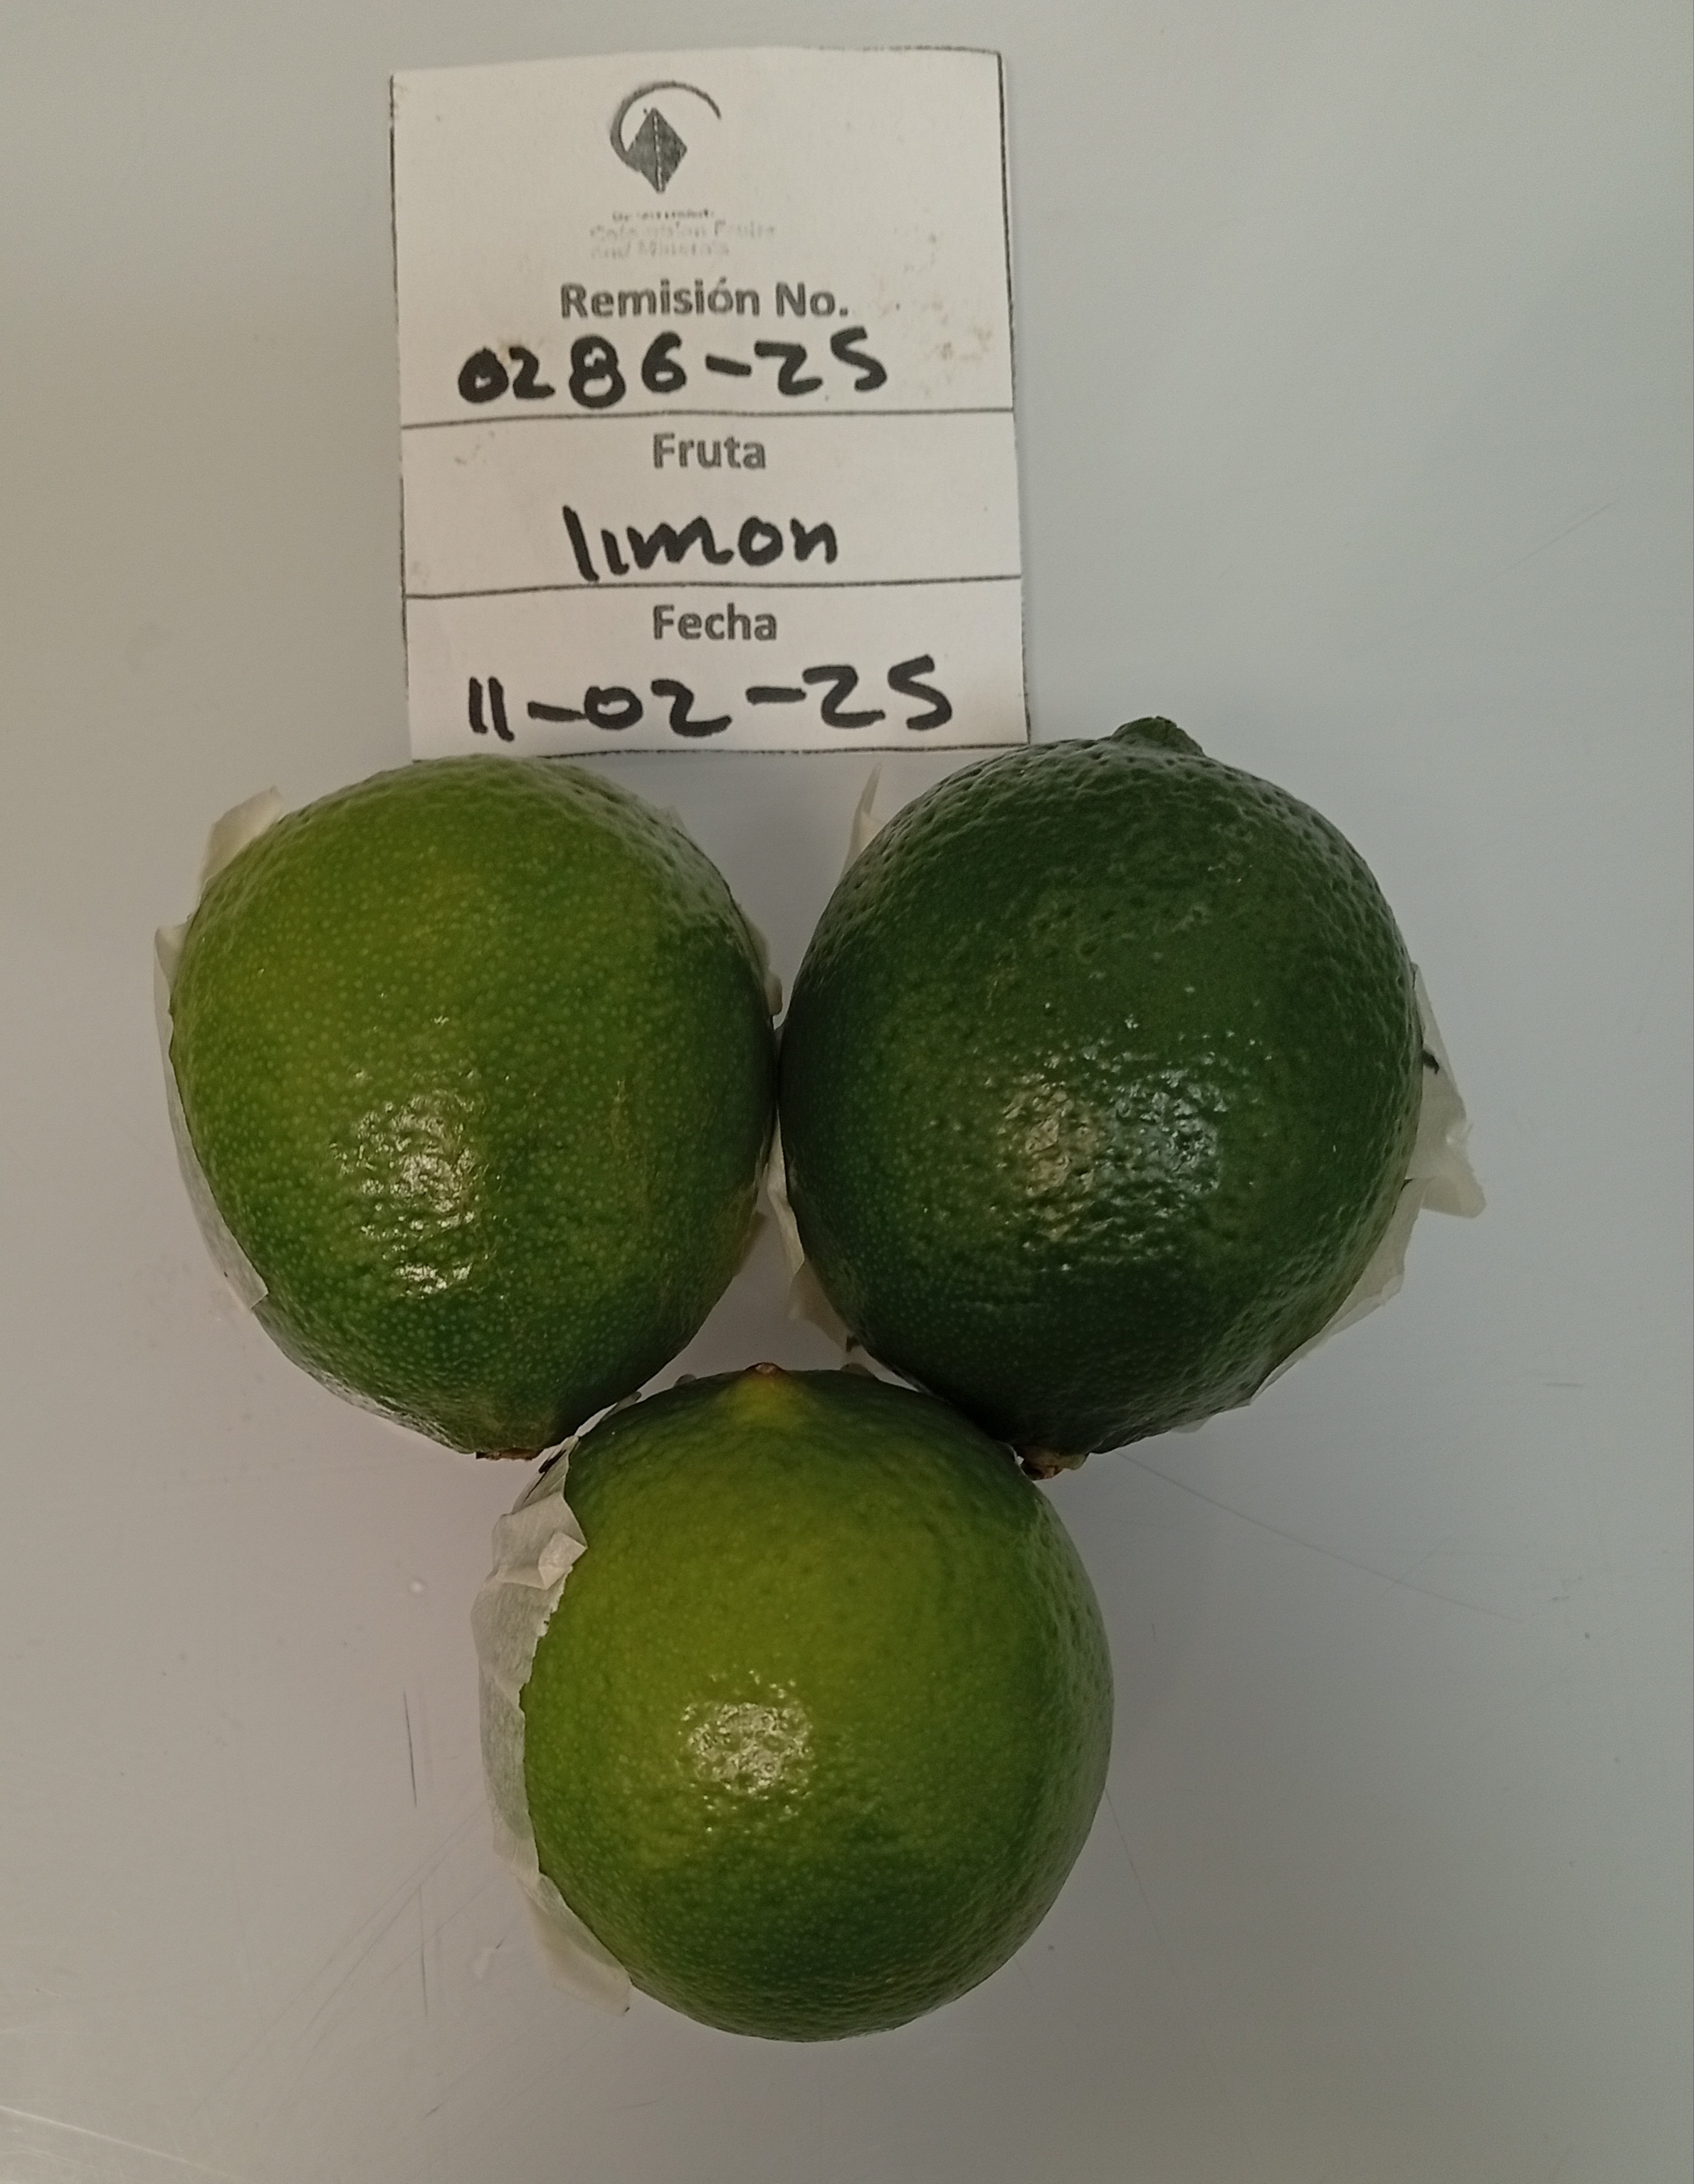 Colombian Fruits
and Minerals
Remisión No.
0286-25
Fruta
limon
Fecha
11-02-25